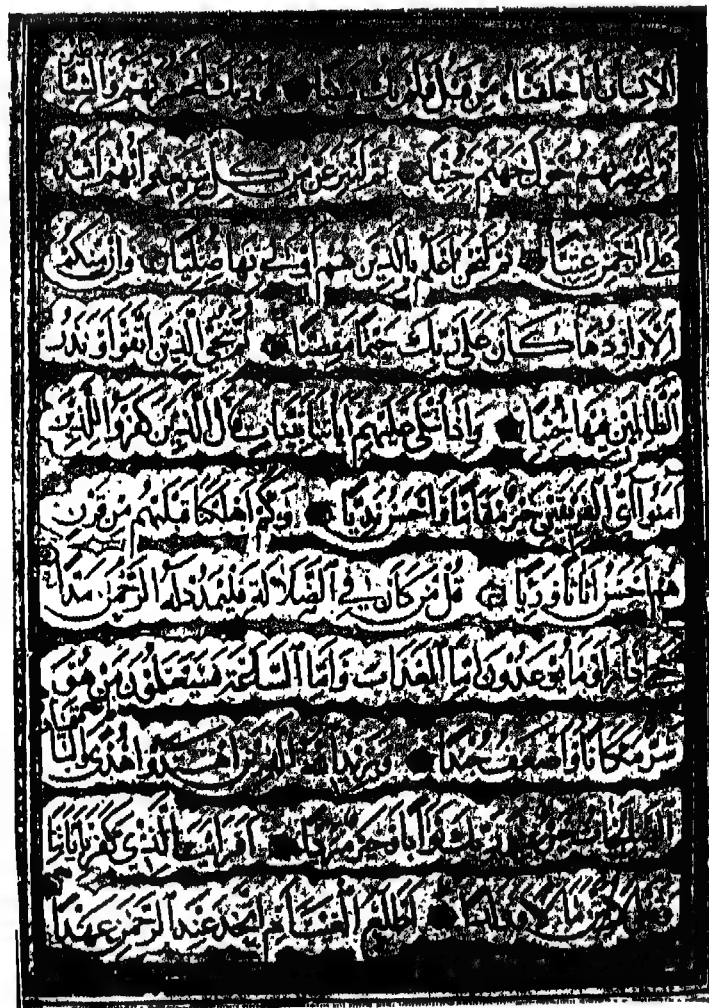 الانسان انا خلقناه من قبل ولم يك شيئا فوربك لنحشرنهم والشياطين
ثم لنحضرنهم حول جهنم جثيا ثم لننزعن من كل شيعة ايهم اشد
على الرحمن عتيا ثم لنحن اعلم بالذين هم اولى بها صليا وان منكم
الا واردها كان على ربك حتما مقضيا ثم ننجى الذين اتقوا ونذر
الظالمين فيها جثيا واذا تتلى عليهم اياتنا بينات قال الذين كفروا للذين
آمنوا اى الفريقين خير مقاما واحسن نديا وكم اهلكنا قبلهم من قرن
هم احسن اثاثا ورئيا قل من كان في الضلالة فليمدد له الرحمن مدا
حتى اذا راوا ما يوعدون اما العذاب واما الساعة فسيعلمون من هو
شر مكانا واضعف جندا ويزيد الله الذين اهتدوا هدى والباقيات
الصالحات خير عند ربك ثوابا وخير مردا افرايت الذى كفر باياتنا
وقال لاوتين مالا وولدا اطلع الغيب ام اتخذ عند الرحمن عهدا